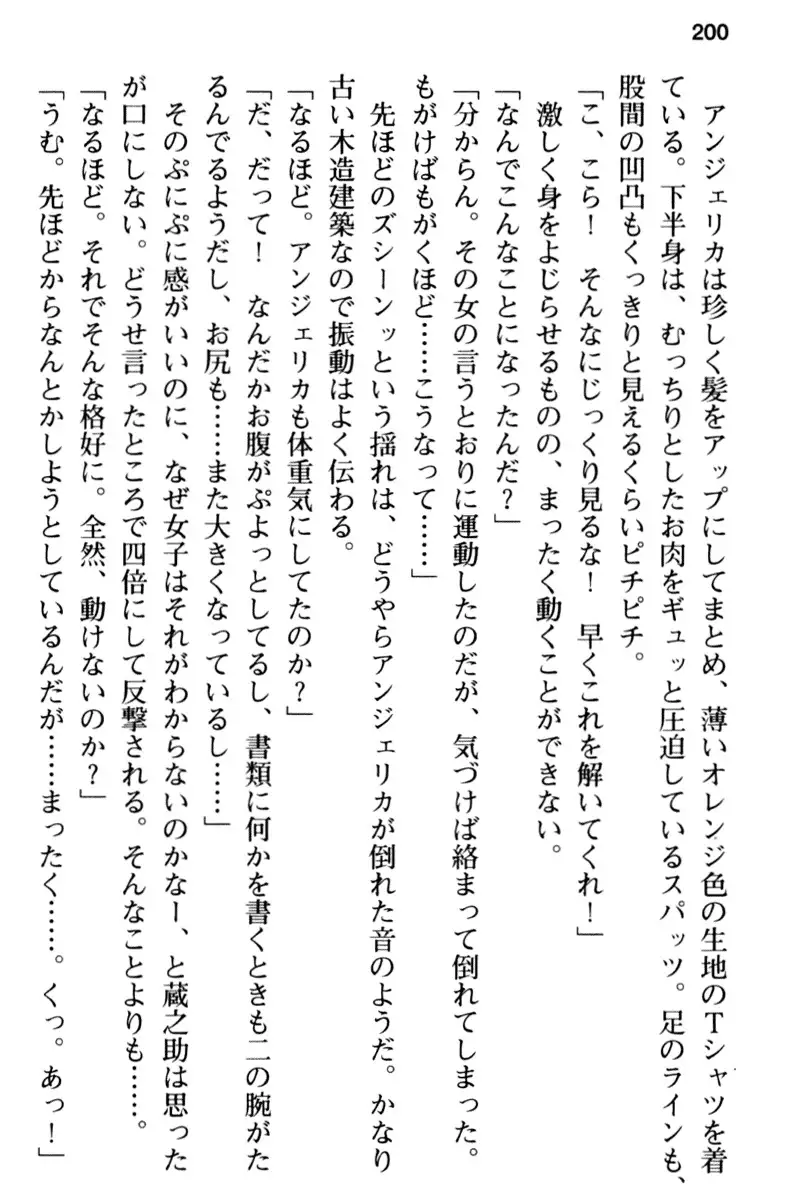 200
アンジェリカは珍しく髪をアップにしてまとめ、薄いオレンジ色の生地のTシャツを着
ている。下半身は、むっちりとしたお肉をギュッと圧迫しているスパッツ。足のラインも、
股間の凹凸もくっきりと見えるくらいピチピチ。
「こ、こら！　そんなにじっくり見るな！　早くこれを解いてくれ！」
激しく身をよじらせるものの、まったく動くことができない。
「なんでこんなことになったんだ？」
「分からん。その女の言うとおりに運動したのだが、気づけば絡まって倒れてしまった。
もがけばもがくほど……こうなって……」
先ほどのズシーンッという揺れは、どうやらアンジェリカが倒れた音のようだ。かなり
古い木造建築なので振動はよく伝わる。
「なるほど。アンジェリカも体重気にしてたのか？」
「だ、だって！　なんだかお腹がぷよっとしてるし、書類に何かを書くときも二の腕がた
るんでるようだし、お尻も……また大きくなっているし……」
そのぷにぷに感がいいのに、なぜ女子はそれがわからないのかなー、と蔵之助は思った
が口にしない。どうせ言ったところで四倍にして反撃される。そんなことよりも……。
「なるほど。それでそんな格好に。全然、動けないのか？」
「うむ。先ほどからなんとかしようとしているんだが……まったく……。くっ。あっ！」